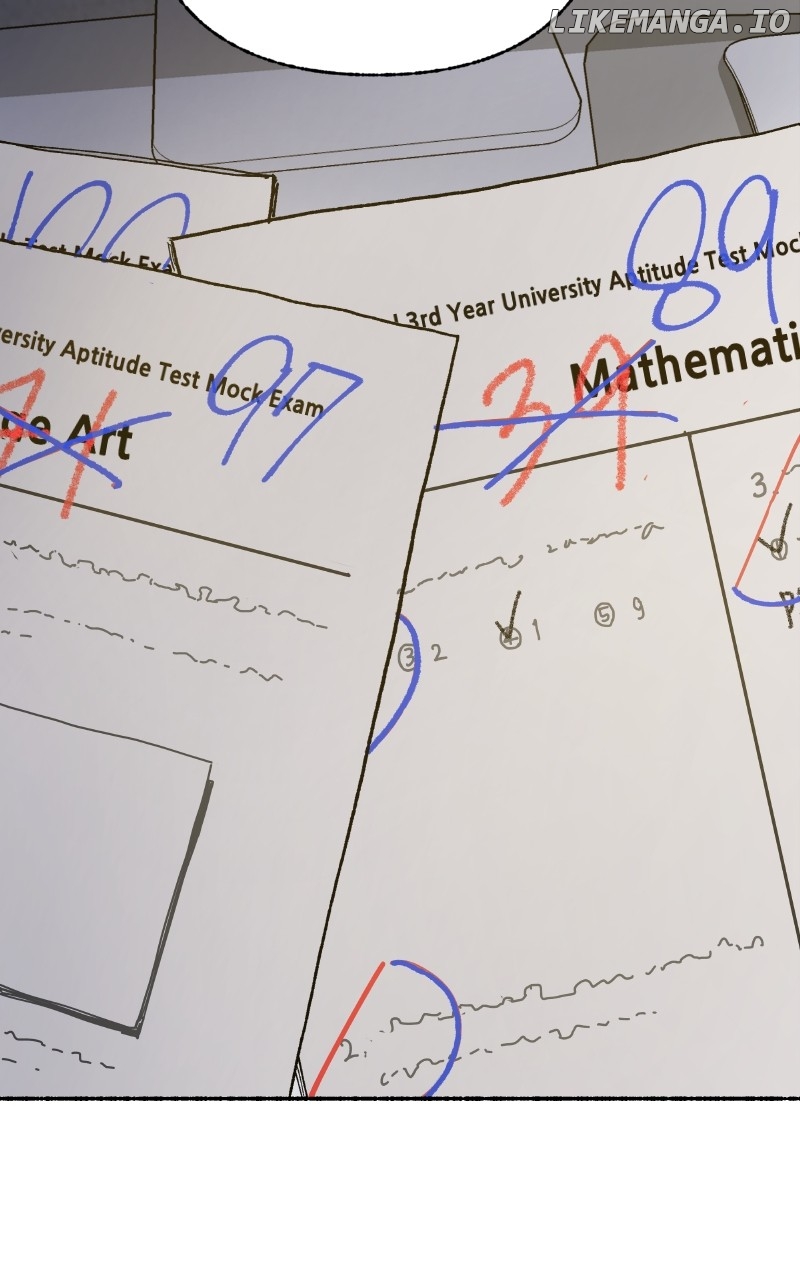 LIKEMANGA.IO
100
Test Mock Exa
89
3rd Year University Aptitude Test Mock
39
Mathemati
versity Aptitude Test Mock Exam
97
71
ge Art
3
③ 2 ④ 1 ⑤ 9
2.